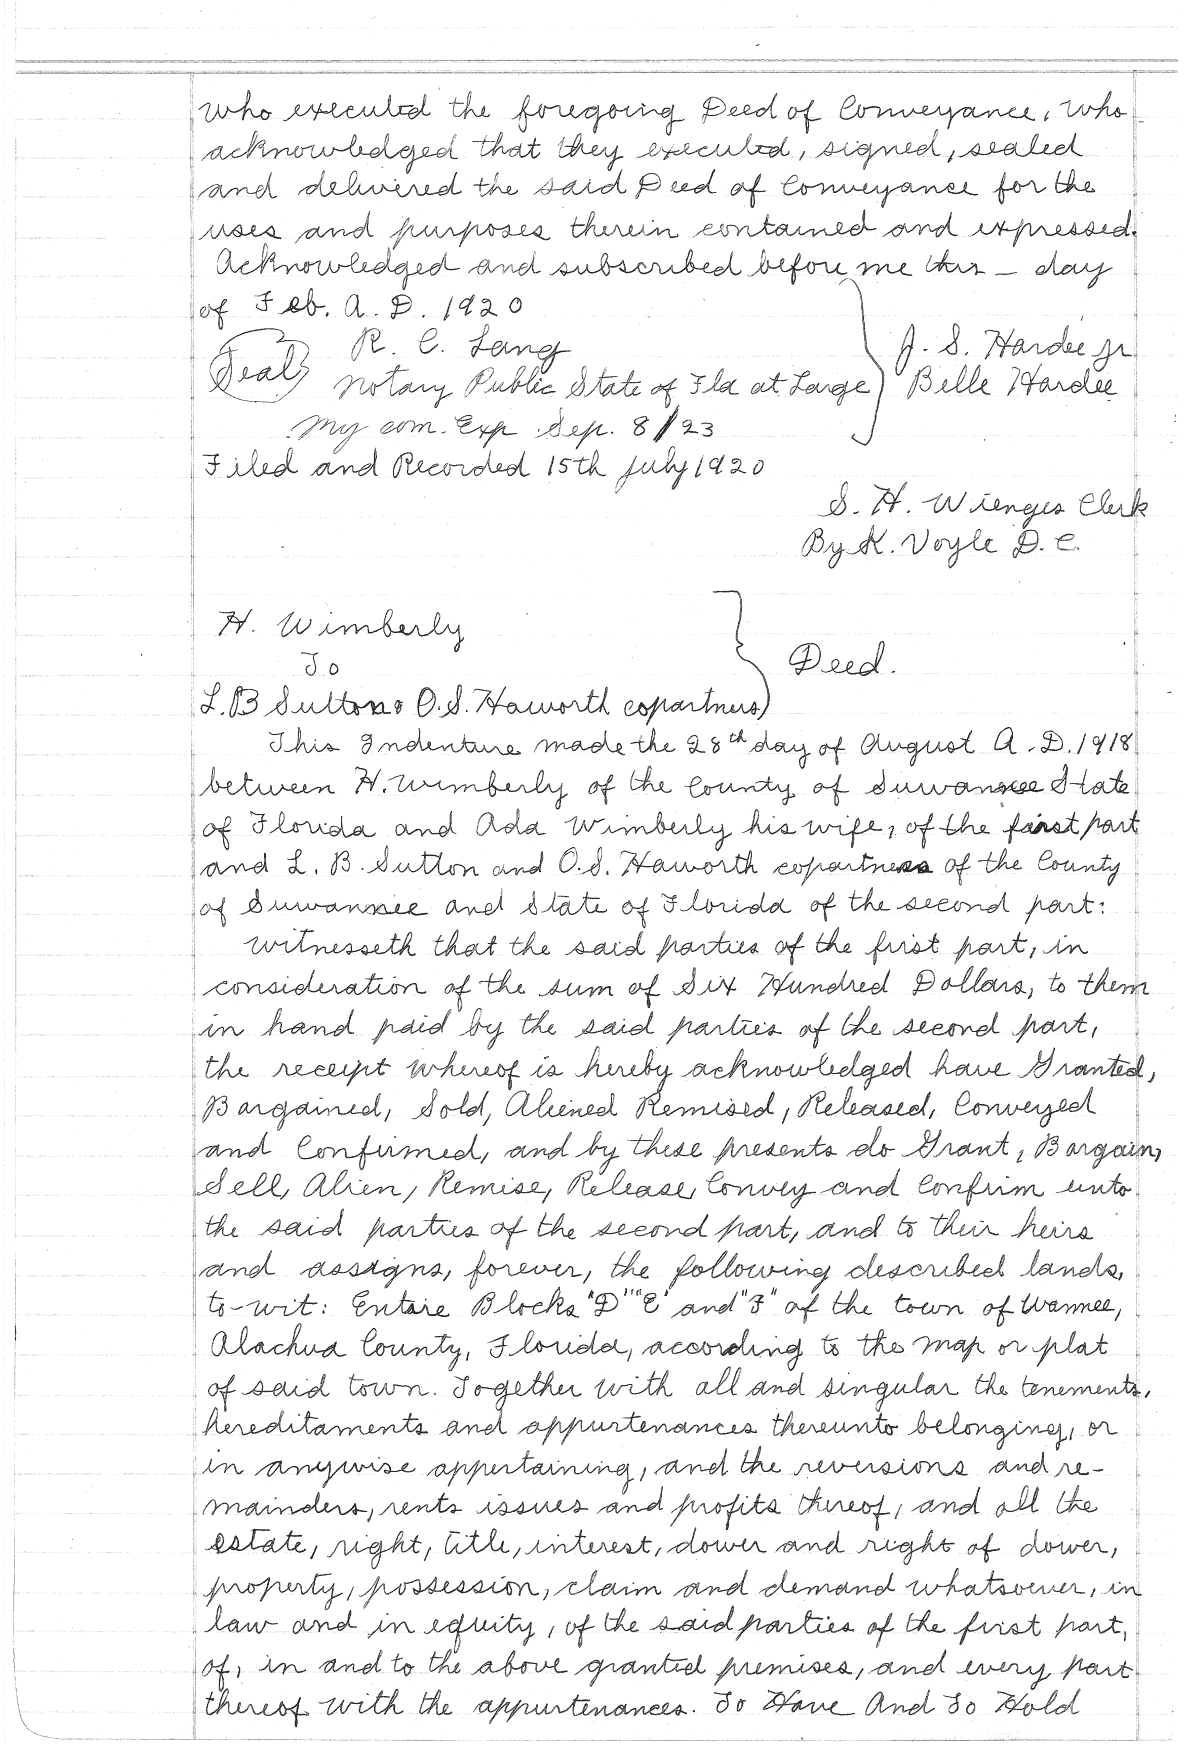 who executed the foregoing Deed of Conveyance, who
acknowledged that they executed, signed, sealed
and delivered the said Deed of Conveyance for the
uses and purposes therein contained and expressed.
Acknowledged and subscribed before me this - day
of Feb. A. D. 1920
R. C. Lang
J. S. Hardee Jr
(Seal)
Notary Public State of Fla at Large
Belle Hardee
My com. Exp. Sep. 8/23
Filed and Recorded 15th July 1920
S. H. Wienges Clerk
By K. Voyle D. C.
H. Wimberly
To
Deed.
L. B Sutton & O. S. Haworth copartners
This Indenture made the 28th day of August A. D. 1918
between H. Wimberly of the County of Suwannee State
of Florida and Ada Wimberly his wife, of the first part
and L. B. Sutton and O. S. Haworth copartners of the County
of Suwannee and State of Florida of the second part:
Witnesseth that the said parties of the first part, in
consideration of the sum of Six Hundred Dollars, to them
in hand paid by the said parties of the second part,
the receipt whereof is hereby acknowledged have Granted,
Bargained, Sold, Aliened Remised, Released, Conveyed
and Confirmed, and by these presents do Grant, Bargain,
Sell, Alien, Remise, Release, Convey and Confrim unto
the said parties of the second part, and to their heirs
and assigns, forever, the following described lands,
to-wit: Entire Blocks "D" "E" and "F" of the town of Wannee,
Alachua County, Florida, according to the map or plat
of said town. Together with all and singular the tenements,
hereditaments and appurtenances thereunto belonging, or
in anywise appertaining, and the reversions and re-
mainders, rents issues and profits thereof, and all the
estate, right, title, interest, dower and right of dower,
property, possession, claim and demand whatsoever, in
law and in equity, of the said parties of the first part,
of, in and to the above granted premises, and every part
thereof with the appurtenances. To Have And To Hold